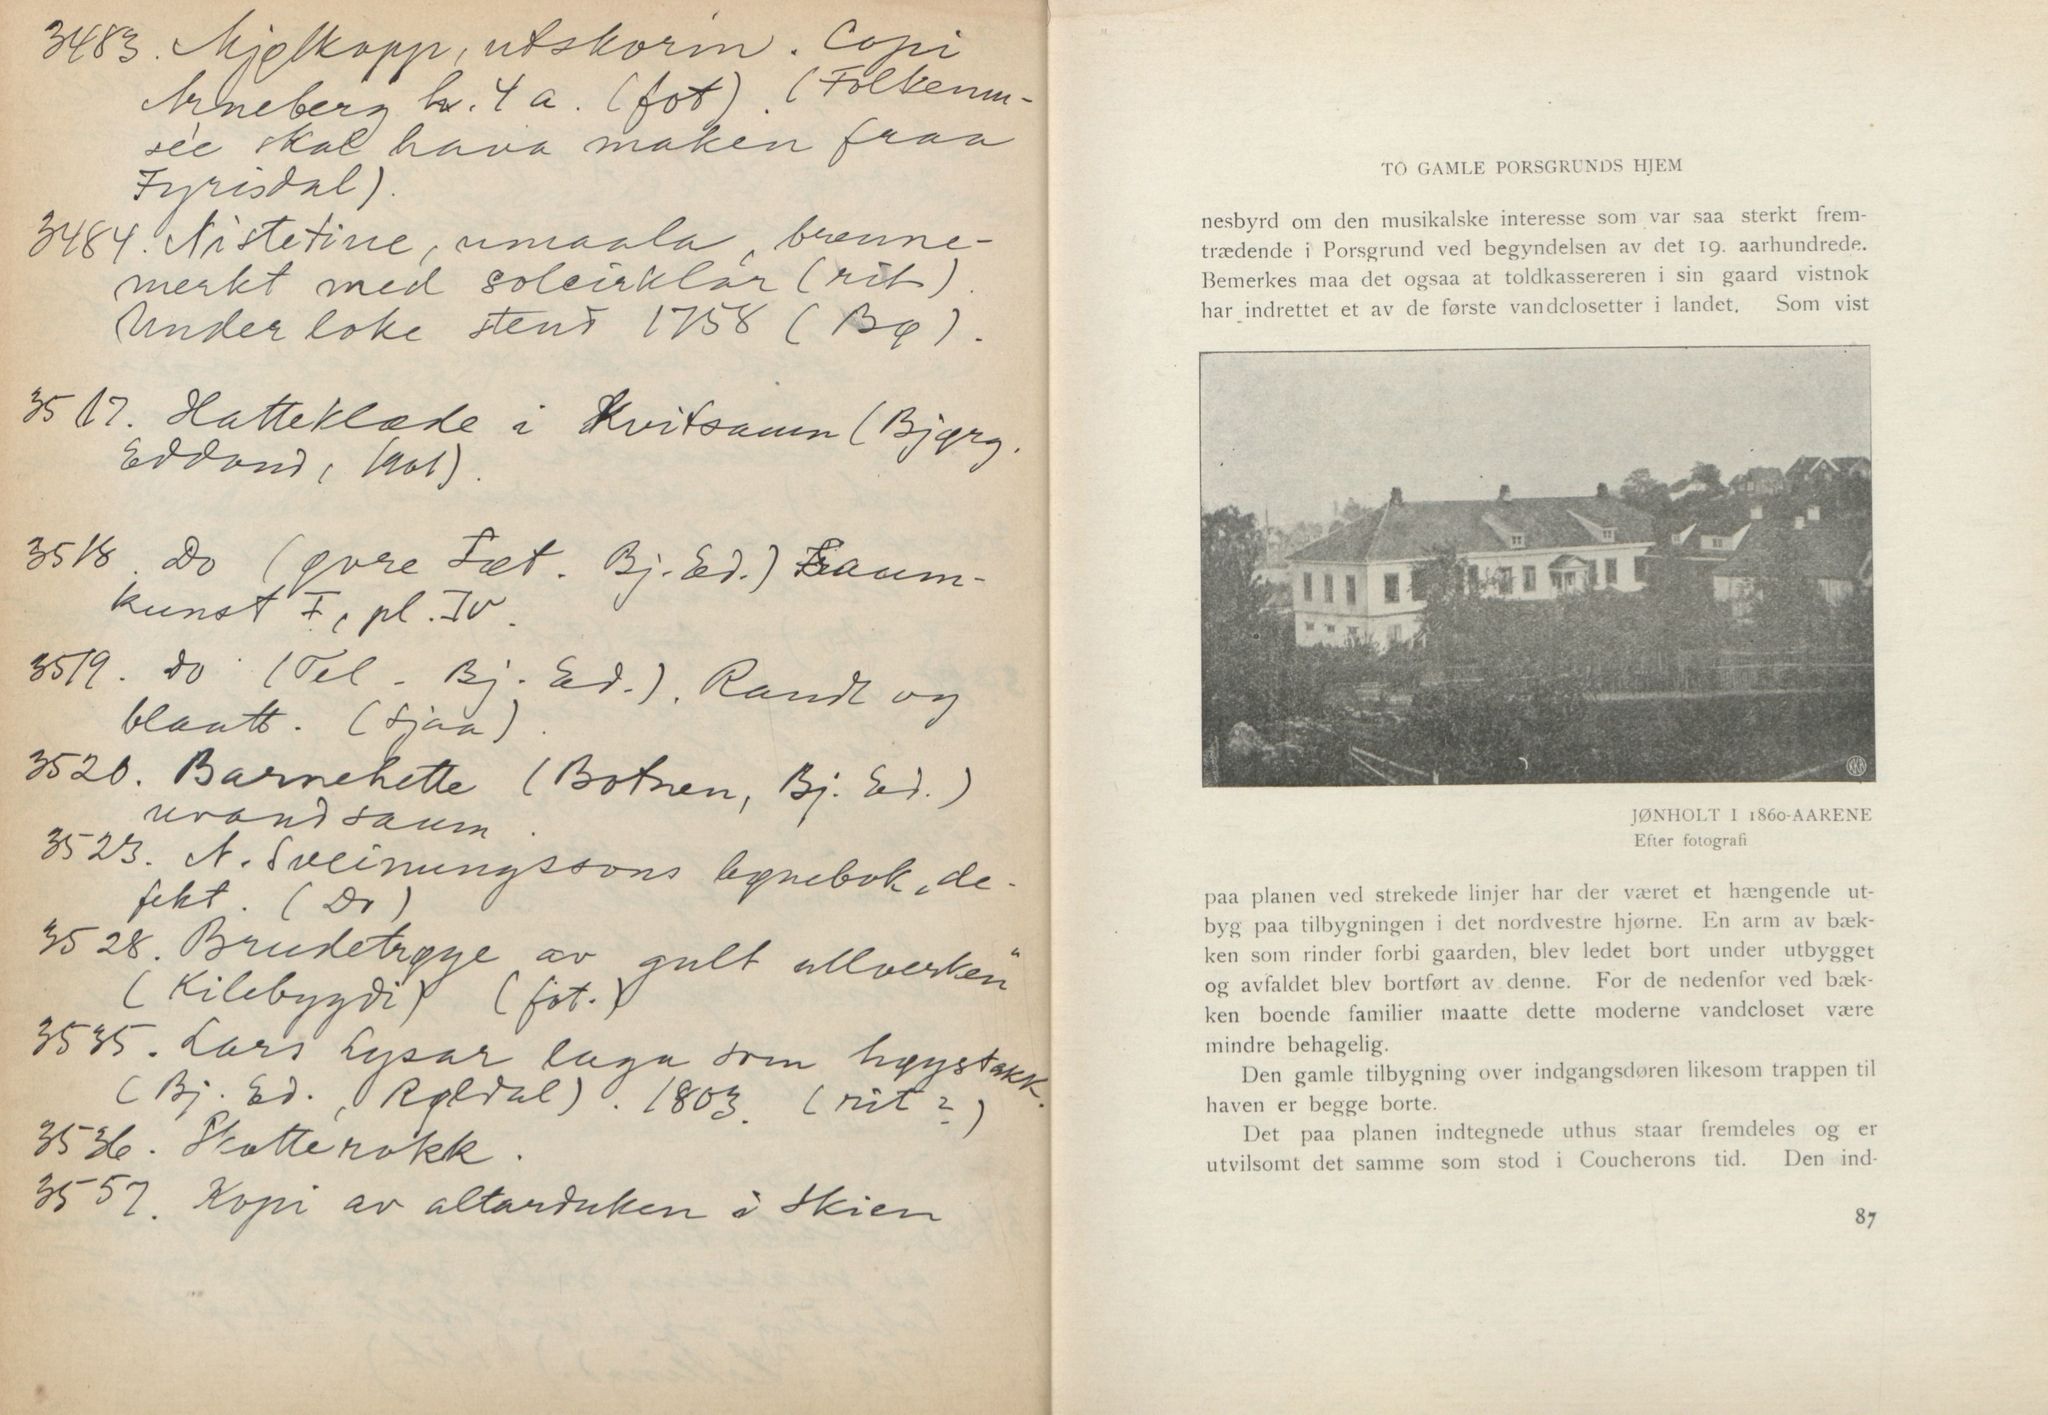 3483. Mjølkopp, utskorin. Copi
Arneberg kr. 4 a. (fot). (Folkemu-
sée skal hava maken fraa
Fyrisdal).
3484. Nistetine, umaala, brenne-
merkt med solcirklar (rit).
Under loke stend 1758 (Bø).
3517. Hatteklæde i Kvitsaum (Bjørg.
Eddand, 1901).
3518. Do (øvre Sæt. Bj. Ed.) Saum-
kunst I, pl. IV.
3519. Do (Tel - Bj. Ed.). Raudt og
blaatt. (Sjaa).
3520. Barnehette (Botnen, Bj. Ed.)
uvandsaum.
3523. N. Sveinungssons bønebok, de-
fekt. (Do)
3528. Brudetrøye av gult ullverken"
(Kilebygdi) (fot.)
3535. Lars Lysar laga som høystakk.
(Bj. Ed., Røldal). 1803. (rit?)
3536. Skotterokk.
3557. Kopi av altarduken i Skien
TO GAMLE PORSGRUNDS HJEM
nesbyrd om den musikalske interesse som var saa sterkt frem-
trædende i Porsgrund ved begyndelsen av det 19. aarhundrede.
Bemerkes maa det ogsaa at toldkassereren i sin gaard vistnok
har indrettet et av de første vandclosetter i landet. Som vist
JØNHOLT I 1860-AARENE
Efter fotografi
paa planen ved strekede linjer har der været et hængende ut-
byg paa tilbygningen i det nordvestre hjørne. En arm av bæk-
ken som rinder forbi gaarden, blev ledet bort under utbygget
og avfaldet blev bortført av denne. For de nedenfor ved bæk-
ken boende familier maatte dette moderne vandcloset være
mindre behagelig.
Den gamle tilbygning over indgangsdøren likesom trappen til
haven er begge borte.
Det paa planen indtegnede uthus staar fremdeles og er
utvilsomt det samme som stod i Coucherons tid. Den ind-
87